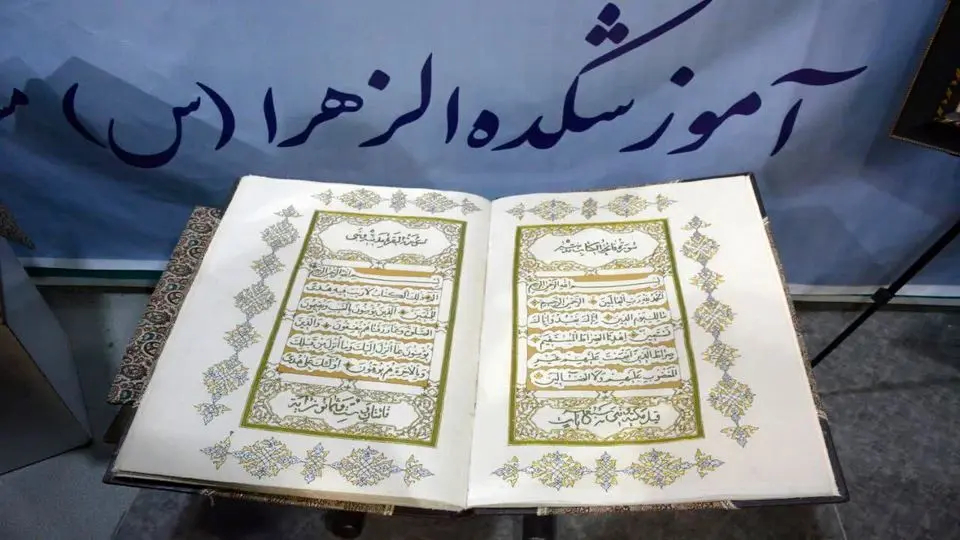 آموزشکده الزهرا (س)
سورة فاتحة الكتاب
بسم الله الرحمن الرحيم
الحمد لله رب العالمين الرحمن الرحيم
مالك يوم الدين إياك نعبد وإياك
نستعين اهدنا الصراط المستقيم
صراط الذين أنعمت عليهم غير
المغضوب عليهم ولا الضالين
سورة البقرة
بسم الله الرحمن الرحيم
الم ذلك الكتاب لا ريب فيه هدى
للمتقين الذين يؤمنون بالغيب ويقيمون
الصلوة ومما رزقناهم ينفقون والذين
يؤمنون بما أنزل إليك وما أنزل من قبلك
وبالآخرة هم يوقنون أولئك على هدى